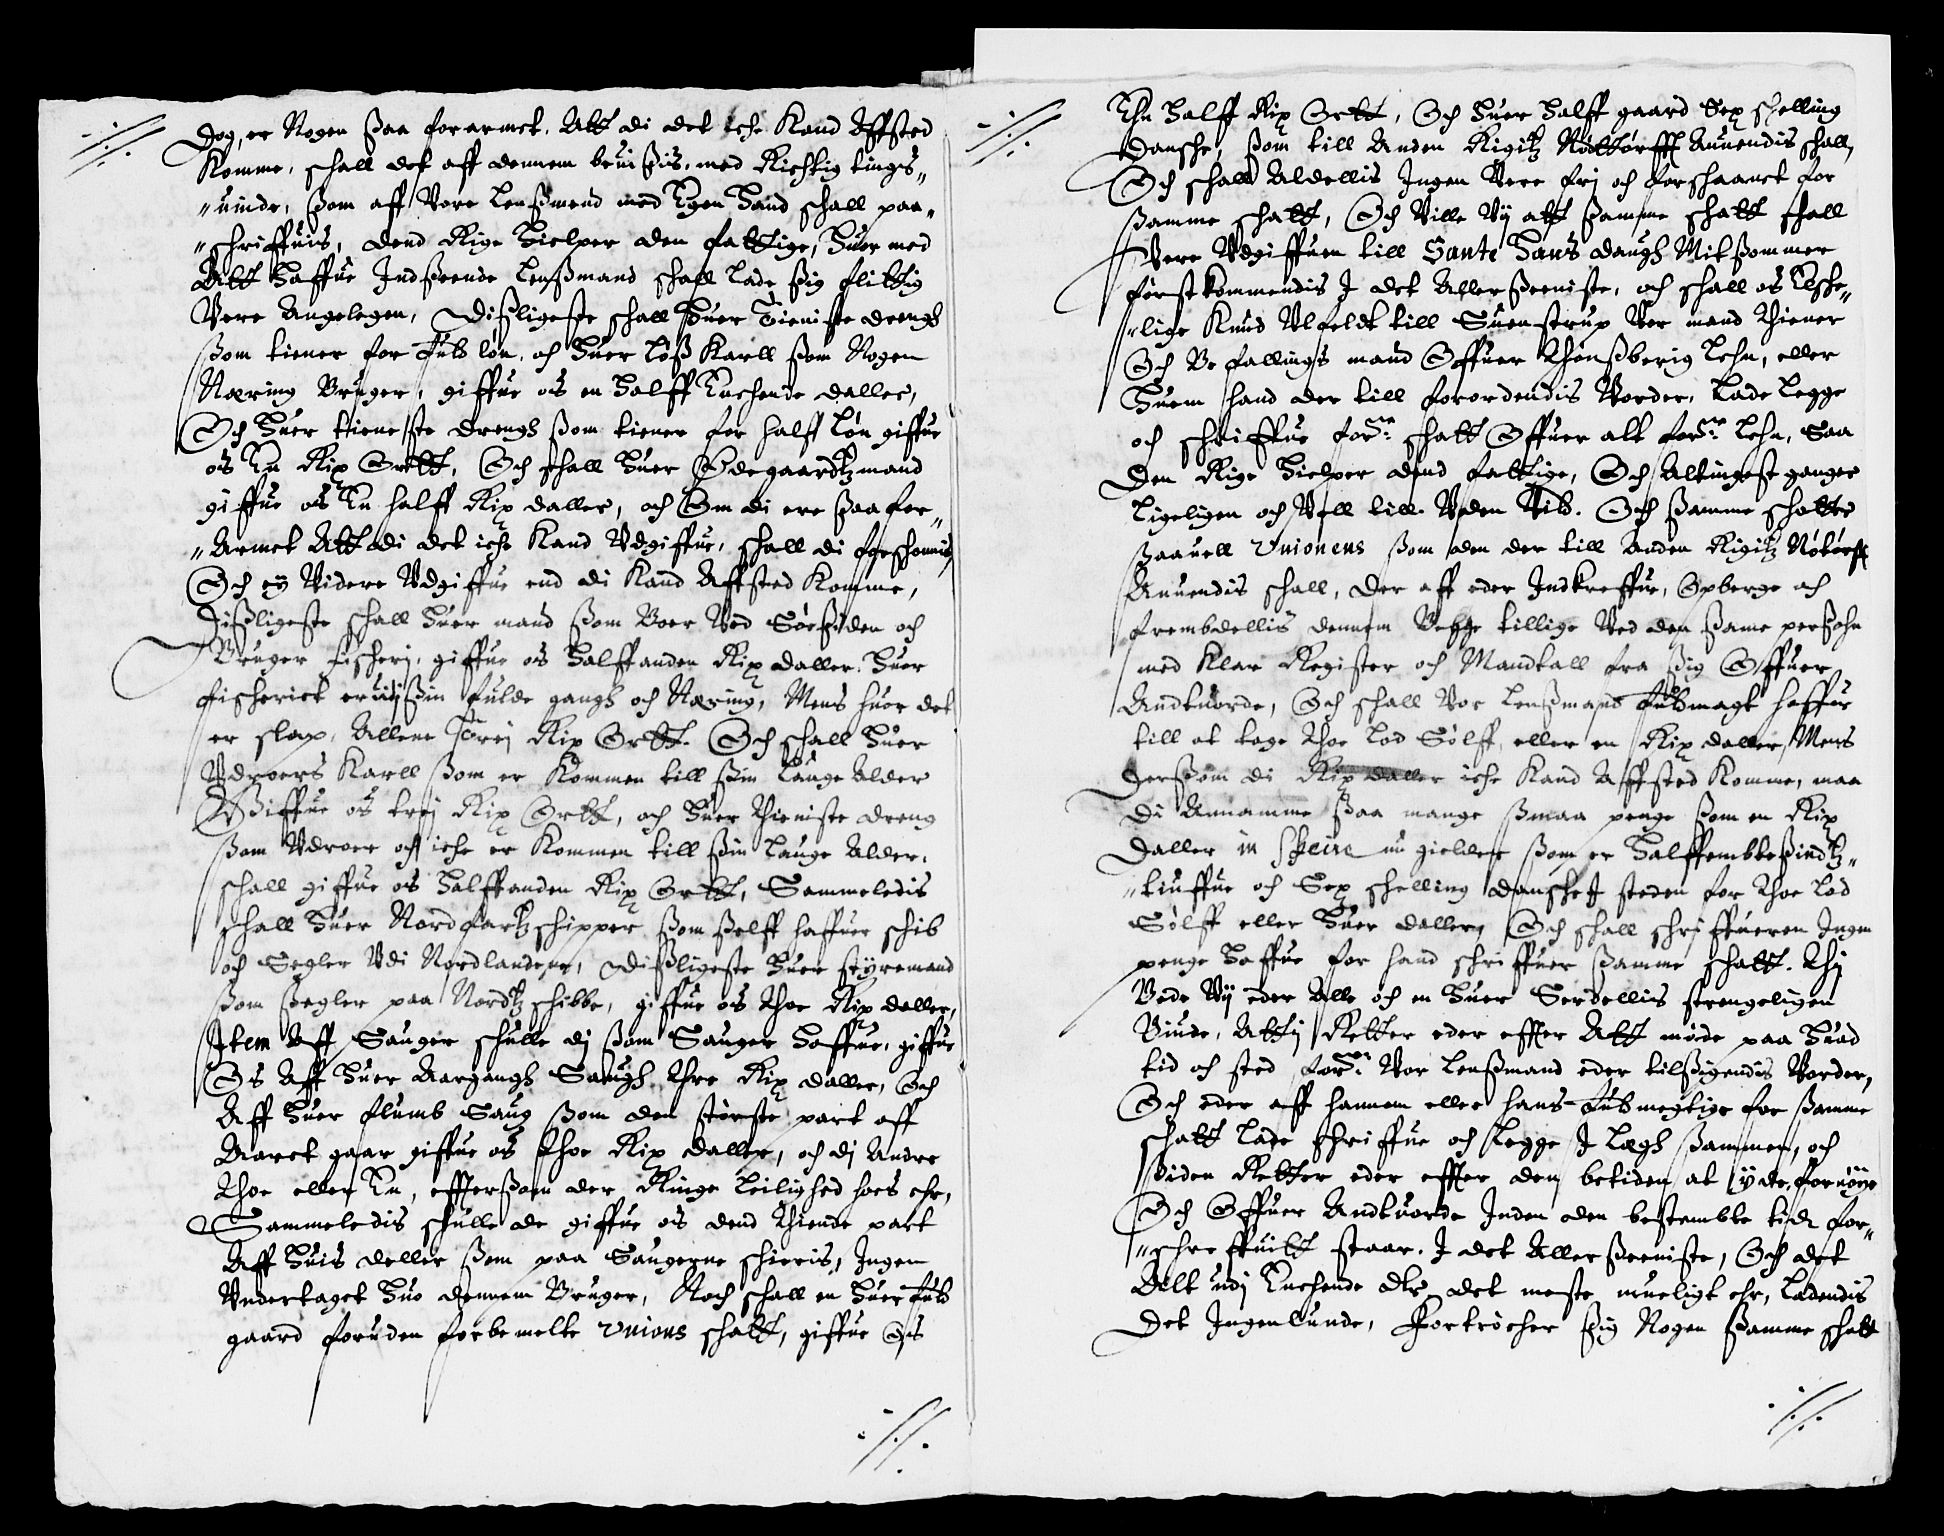 Dog, er Nogen saa forarmet, Att di det iche Kand Affsted
Komme, schall det aff dennem beuisis, med Richtig tings„
„uinde, som aff Vore Lensmend med Egen Haand schall paa„
„schriffuis, dend Rige Hielper den fattige, Huer med
Att Haffue Indseende Lensmand schall lade sig flittig
Vere Angelegen, Disligeste schall Huer Tieniste drengh
som tiener for Fuld løn, och Huer Løs Karll som Nogen
Næring Bruger, giffue os en Halff Enchende daller,
Och Huer tieneste drengh som tiener for halff Løn giffue
os En Rix Ortt, Och schall Huer Ødegaardtzmand
giffue os En halff Rix daller, och Om di ere saa for„
„Armet Att di det iche Kand Vdgiffue, schall di forschonnis,
Och ey Videre Vdgiffue end di Kand Affsted Komme,
Disligeste schall Huer mand som Boer Ved Søesiden och
Bruger fischerj, giffue os Halffanden Rix daller. Huer
fischeriet er udi sin fulde gangh och Næring, Mens huor det
er slap, Allene Trej Rix Ortt. Och schall Huer
Vdroers Karll som er Kommen till sin Lauge Alder
Giffue os trej Rix Ortt, och Huer Thieniste dreng
som Vdroer och iche er Kommen till sin Lauge Alder,
schall giffue os Halffanden Rix Ortt, Sammeledis
schall Huer Nordfartzschipper som selff haffuer schib
och Segler Vdi Nordlandene, Disligeste Huer styremand
som segler paa Nordtzschibbe, giffue os Thoe Rix daller,
Item Aff Sauger schulle dj som Sauger Haffue, giffue
Os Aff Huer Aargangh Saugh Thre Rix daller, Och
Aff Huer flumb Saug som den største part aff
Aaret gaar giffue os Thoe Rix daller, och dj Andre
Thoe eller En, effttersom der Ringe Leilighed hoes ehr,
Sammeledis schulle de giffue os dend Thiende part
Aff Huis deller som paa Saugerne schieris, Ingen
Vndertaget Huo dennem Bruger, Noch schall en Huer Fuld
gaard foruden forbemelte Unions schatt, giffue Os
Ehn Halff Rix Ortt, Och Huer Halff gaard Sex schelling
Dansche, som till Anden Rigitz Nøttørfft Anuendis schall,
Och schall Aldellis Ingen Vere frj och forschaanet for
samme schatt, Och Ville Vij att samme schatt schall
Vere Vdgiffuen till Sante Hans daugh Mitsommer
først kommendis I det Allerseeniste, och schall os Elsche„
„lige Knud Vlfeldt till Suenstrup Vor mand Thiener
Och Befallings mand Offuer Thønsberig Lehn, eller
Huem hand der till forordendis Vorder, Lade Legge
och schriffue forne: schatt Offuer alt forne: Lehn, Saa
Den Rige Hielper dend fattige, Och Altingest ganger
Ligeligen och Vell till. Vden Vild. Och samme schatte
saauell Unionens som den der till Anden Rigitz Nøtørfft
Anuendis schall, der aff eder Indkreffue, Opberge och
frembdellis dennem Begge tillige Ved den same persohn
med Klar Register och Mandtall fra sig Offuer
Andtuorde, Och schall Vor Lensmands Fuldmagt haffue
till at tage Thoe Lod Sølff, eller en Rix daller, Mens
Dersom di Rix daller iche Kand Affsted Komme, maa
Di Annamme saa mange smaa penge som en Rix
Daller in Speire nu gielder som er Halffembtesindtz„
„tiuffue och Sex schelling Dansche I steden for Thoe Lod
Sølff eller Huer daller, Och schall schriffueren Ingen
penge Haffue for hand schriffuer samme schatt. Thj
Bede Vij eder Alle och en Huer Serdellis strengeligen
Biude, Att ij Retter eder effter Att møde paa Huad
tid och sted forne: Vor Lensmand eder tilsigendis Vorder,
Och eder aff hannem eller hans Fuldmegtige for samme
schatt Lade schriffue och Legge I Legh sammen, och
siden Retter eder effter den betiden at yde, fornøye
Och Offuer Andtuorde Inden den bestembte tid, for„
„schreffuitt staar. I det Allerseeniste, Och det
Alt udj Enchende dlr det meste mueligt ehr, Ladendis
Det Ingenlunde, Fortrøcher sig Nogen samme schatt